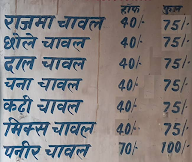 हाफ फुल
राजमा चावल 40/- 75/-
छोले चावल 40/- 75/-
दाल चावल 40/- 75/-
चना चावल 40/- 75/-
कढी चावल 40/- 75/-
मिक्स चावल 40/- 75/-
पनीर चावल 70/- 100/-